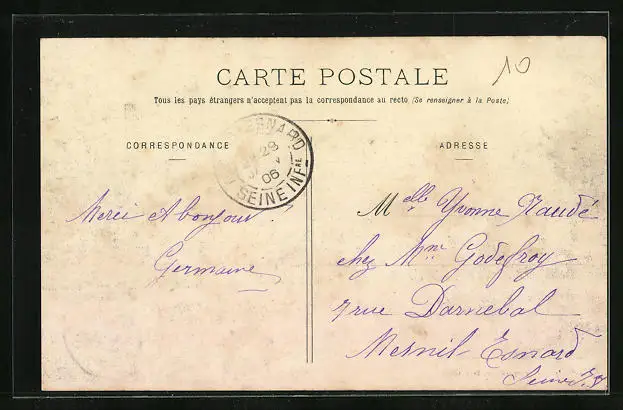 10
CARTE POSTALE
Tous les pays étrangers n'acceptent pas la correspondance au recto (Se renseigner à la Poste)
CORRESPONDANCE
ADRESSE
ESNARD
28
06
SEINE INFRE
Merci A bonjour
Germaine
Melle Yvonne Naudé
chez Mme Godefroy
7 rue Darnetal
Mesnil Esnard
Seine I